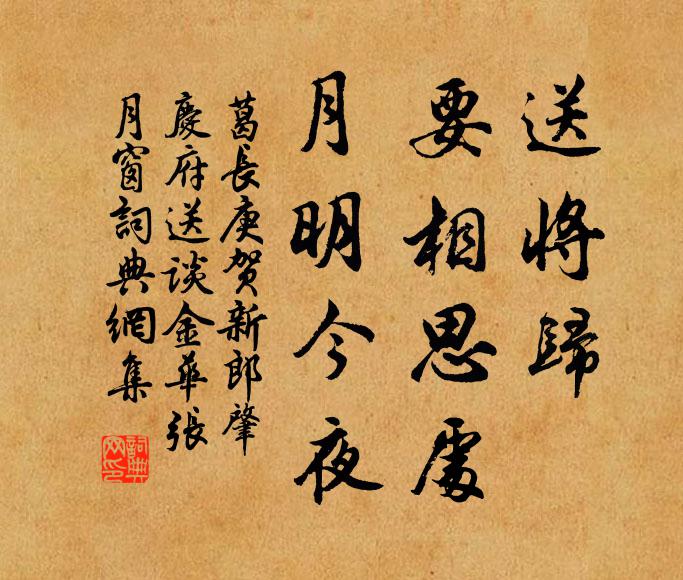 送將歸
要相思處
月明今夜
葛長庚賀新郎肇
慶府送談金華張
月窗詞典網集
詞典
网印